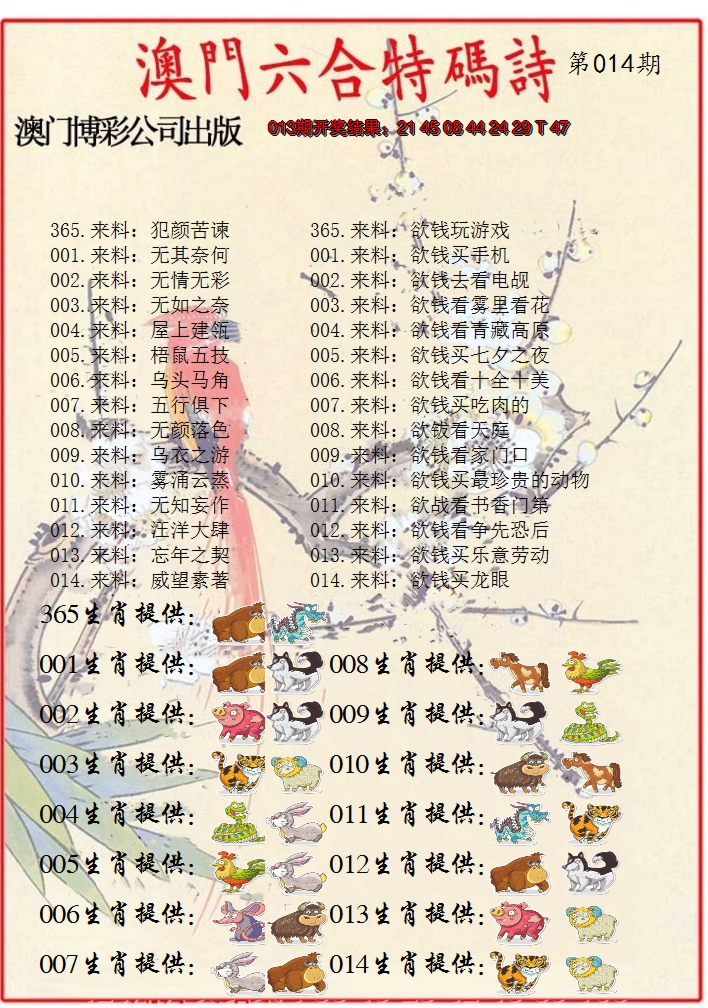 澳門六合特碼詩 第014期
澳门博彩公司出版 013期开奖结果：21 46 08 44 24 29 T 47
365.来料：犯颜苦谏 365.来料：欲钱玩游戏
001.来料：无其奈何 001.来料：欲钱买手机
002.来料：无情无彩 002.来料：欲钱去看电觇
003.来料：无如之奈 003.来料：欲钱看雾里看花
004.来料：屋上建瓴 004.来料：欲钱看青藏高原
005.来料：梧鼠五技 005.来料：欲钱买七夕之夜
006.来料：乌头马角 006.来料：欲钱看十全十美
007.来料：五行俱下 007.来料：欲钱买吃肉的
008.来料：无颜落色 008.来料：欲钱看天庭
009.来料：乌衣之游 009.来料：欲钱看家门口
010.来料：雾涌云蒸 010.来料：欲钱买最珍贵的动物
011.来料：无知妄作 011.来料：欲战看书香门第
012.来料：汪洋大肆 012.来料：欲钱看争先恐后
013.来料：忘年之契 013.来料：欲钱买乐意劳动
014.来料：威望素著 014.来料：欲钱买龙眼
365生肖提供：
001生肖提供： 008生肖提供：
002生肖提供： 009生肖提供：
003生肖提供： 010生肖提供：
004生肖提供： 011生肖提供：
005生肖提供： 012生肖提供：
006生肖提供： 013生肖提供：
007生肖提供： 014生肖提供：